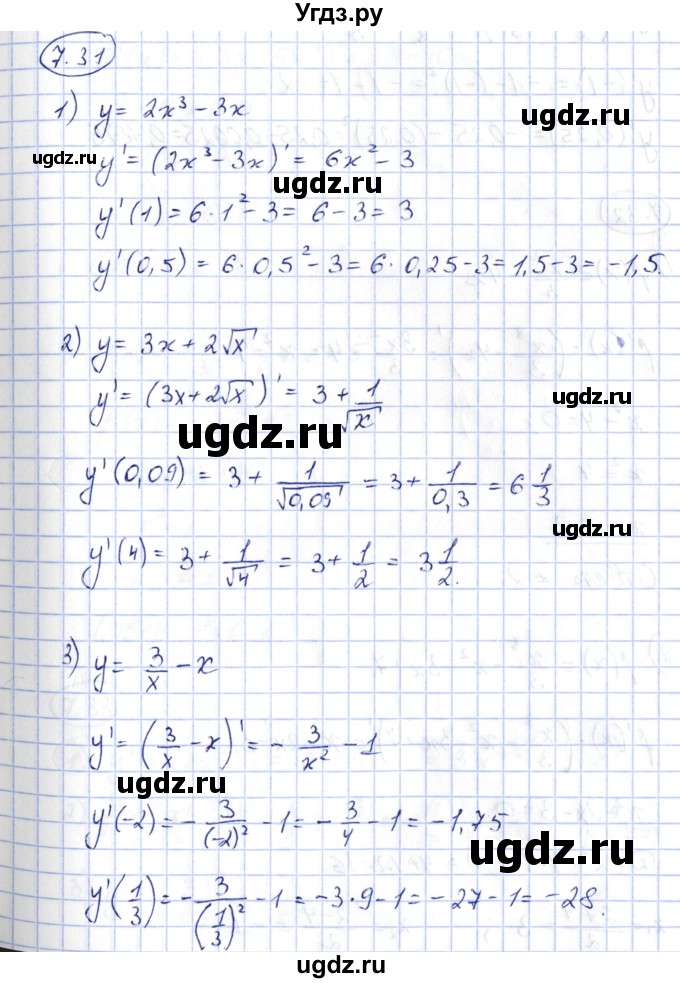 Угдз.ру
7.31
1) y = 2x³ - 3x
ugdz.ru
y' = (2x³ - 3x)' = 6x² - 3
ugdz.ru
y'(1) = 6·1² - 3 = 6 - 3 = 3
y'(0,5) = 6·0,5² - 3 = 6·0,25 - 3 = 1,5 - 3 = -1,5.
2) y = 3x + 2√x
y' = (3x + 2√x)' = 3 + 1/√x
ugdz.ru
ugdz.ru
y'(0,09) = 3 + 1/√0,09 = 3 + 1/0,3 = 6 1/3
ugdz.ru
y'(4) = 3 + 1/√4 = 3 + 1/2 = 3 1/2.
3) y = 3/x - x
y' = (3/x - x)' = - 3/x² - 1
ugdz.ru
y'(-2) = - 3/(-2)² - 1 = - 3/4 - 1 = -1,75
ugdz.ru
y'(1/3) = - 3/(1/3)² - 1 = -3·9 - 1 = -27 - 1 = -28.
ugdz.ru